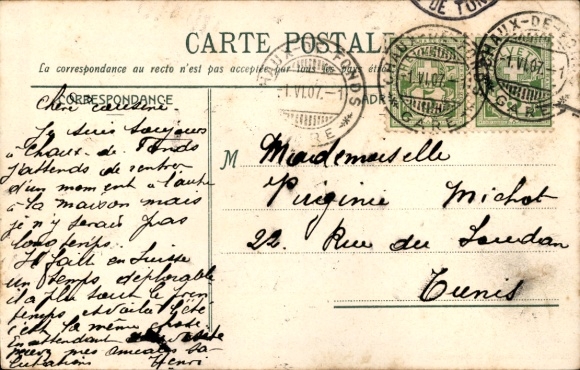 DE TUN
CARTE POSTALE
La correspondance au recto n'est pas acceptée par tous les pays étran
CORRESPONDANCE
ADR
CHAUX-DE-FONDS
1.VI.07.-1
GARE
CHAUX-DE-FONDS
1.VI.07
GARE
CHAUX-DE-FO
1.VI.07
GARE
Chère cousine.
Je suis toujours
à Chaux-de-Fonds
J'attends de rentrer
d'un moment à l'autre
à la maison mais
je n'y serais pas
longtemps.
Il fait en Suisse
un temps déplorable
il a plu tout le prin
temps et voilà l'été
c'est la même chose.
En attendant
mes amicales sa
lutations Henri
M Mademoiselle
Virginie Michot
22. Rue du Soudan
Tunis